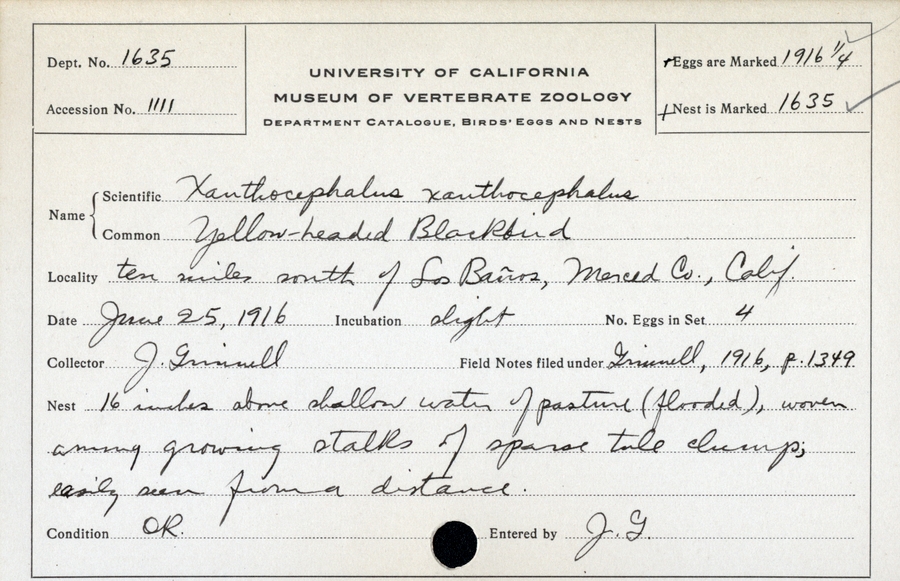 Dept. No. 1635
Accession No. 1111
UNIVERSITY OF CALIFORNIA
MUSEUM OF VERTEBRATE ZOOLOGY
DEPARTMENT CATALOGUE, BIRDS' EGGS AND NESTS
Eggs are Marked 1916 1/4
Nest is Marked 1635
Name
Scientific Xanthocephalus xanthocephalus
Common Yellow-headed Blackbird
Locality ten miles south of Los Baños, Merced Co., Calif.
Date June 25, 1916 Incubation slight No. Eggs in Set 4
Collector J. Grinnell Field Notes filed under Grinnell, 1916, p. 1349
Nest 16 inches above shallow water of pasture (flooded), woven
among growing stalks of sparse tule clump;
easily seen from a distance.
Condition OK. Entered by J. G.